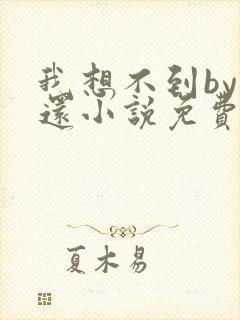 我想不到by
還小說免費
夏木易